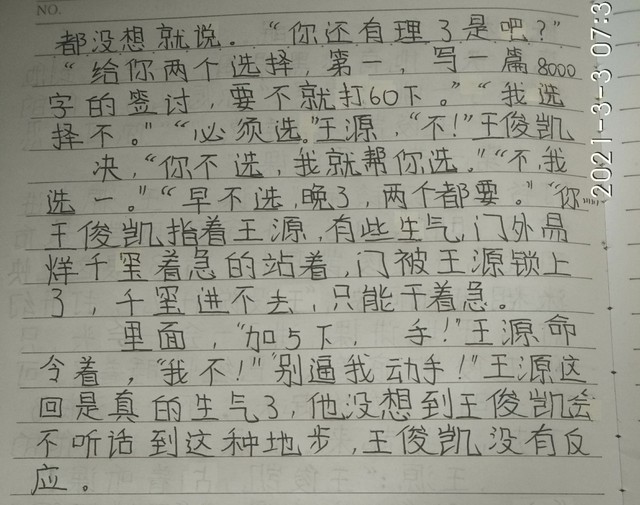 NO.
都没想就说。“你还有理了是吧？”
“给你两个选择，第一，写一篇8000
字的签讨，要不就打60下。”“我选
择不。”“必须选。”王源，“不！”王俊凯
决，“你不选，我就帮你选。”“不，我
选一。”“早不选，晚了，两个都要。”“你
王俊凯指着王源，有些生气，门外易
烊千玺着急的站着，门被王源锁上
了，千玺进不去，只能干着急。
里面，“加5下， 手！”王源命
令着，“我不！”“别逼我动手！”王源这
回是真的生气了，他没想到王俊凯会
不听话到这种地步，王俊凯没有反
应。
2021-3-3 07:3